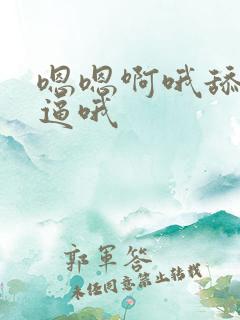 嗯嗯啊哦舔
逼哦
郭軍答
未经同意禁止转载